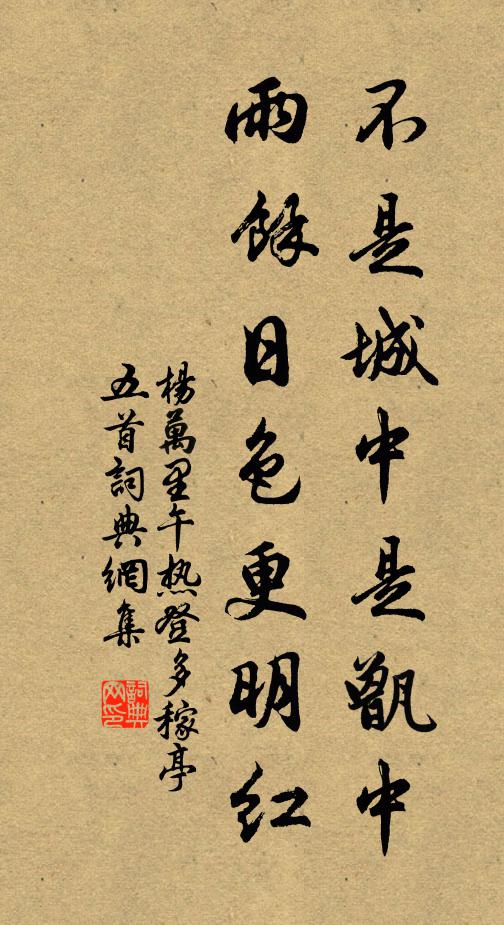 不是城中是甑中
雨餘日色更明紅
楊萬里午热登多稼亭
五首詞典網集
詞典网印